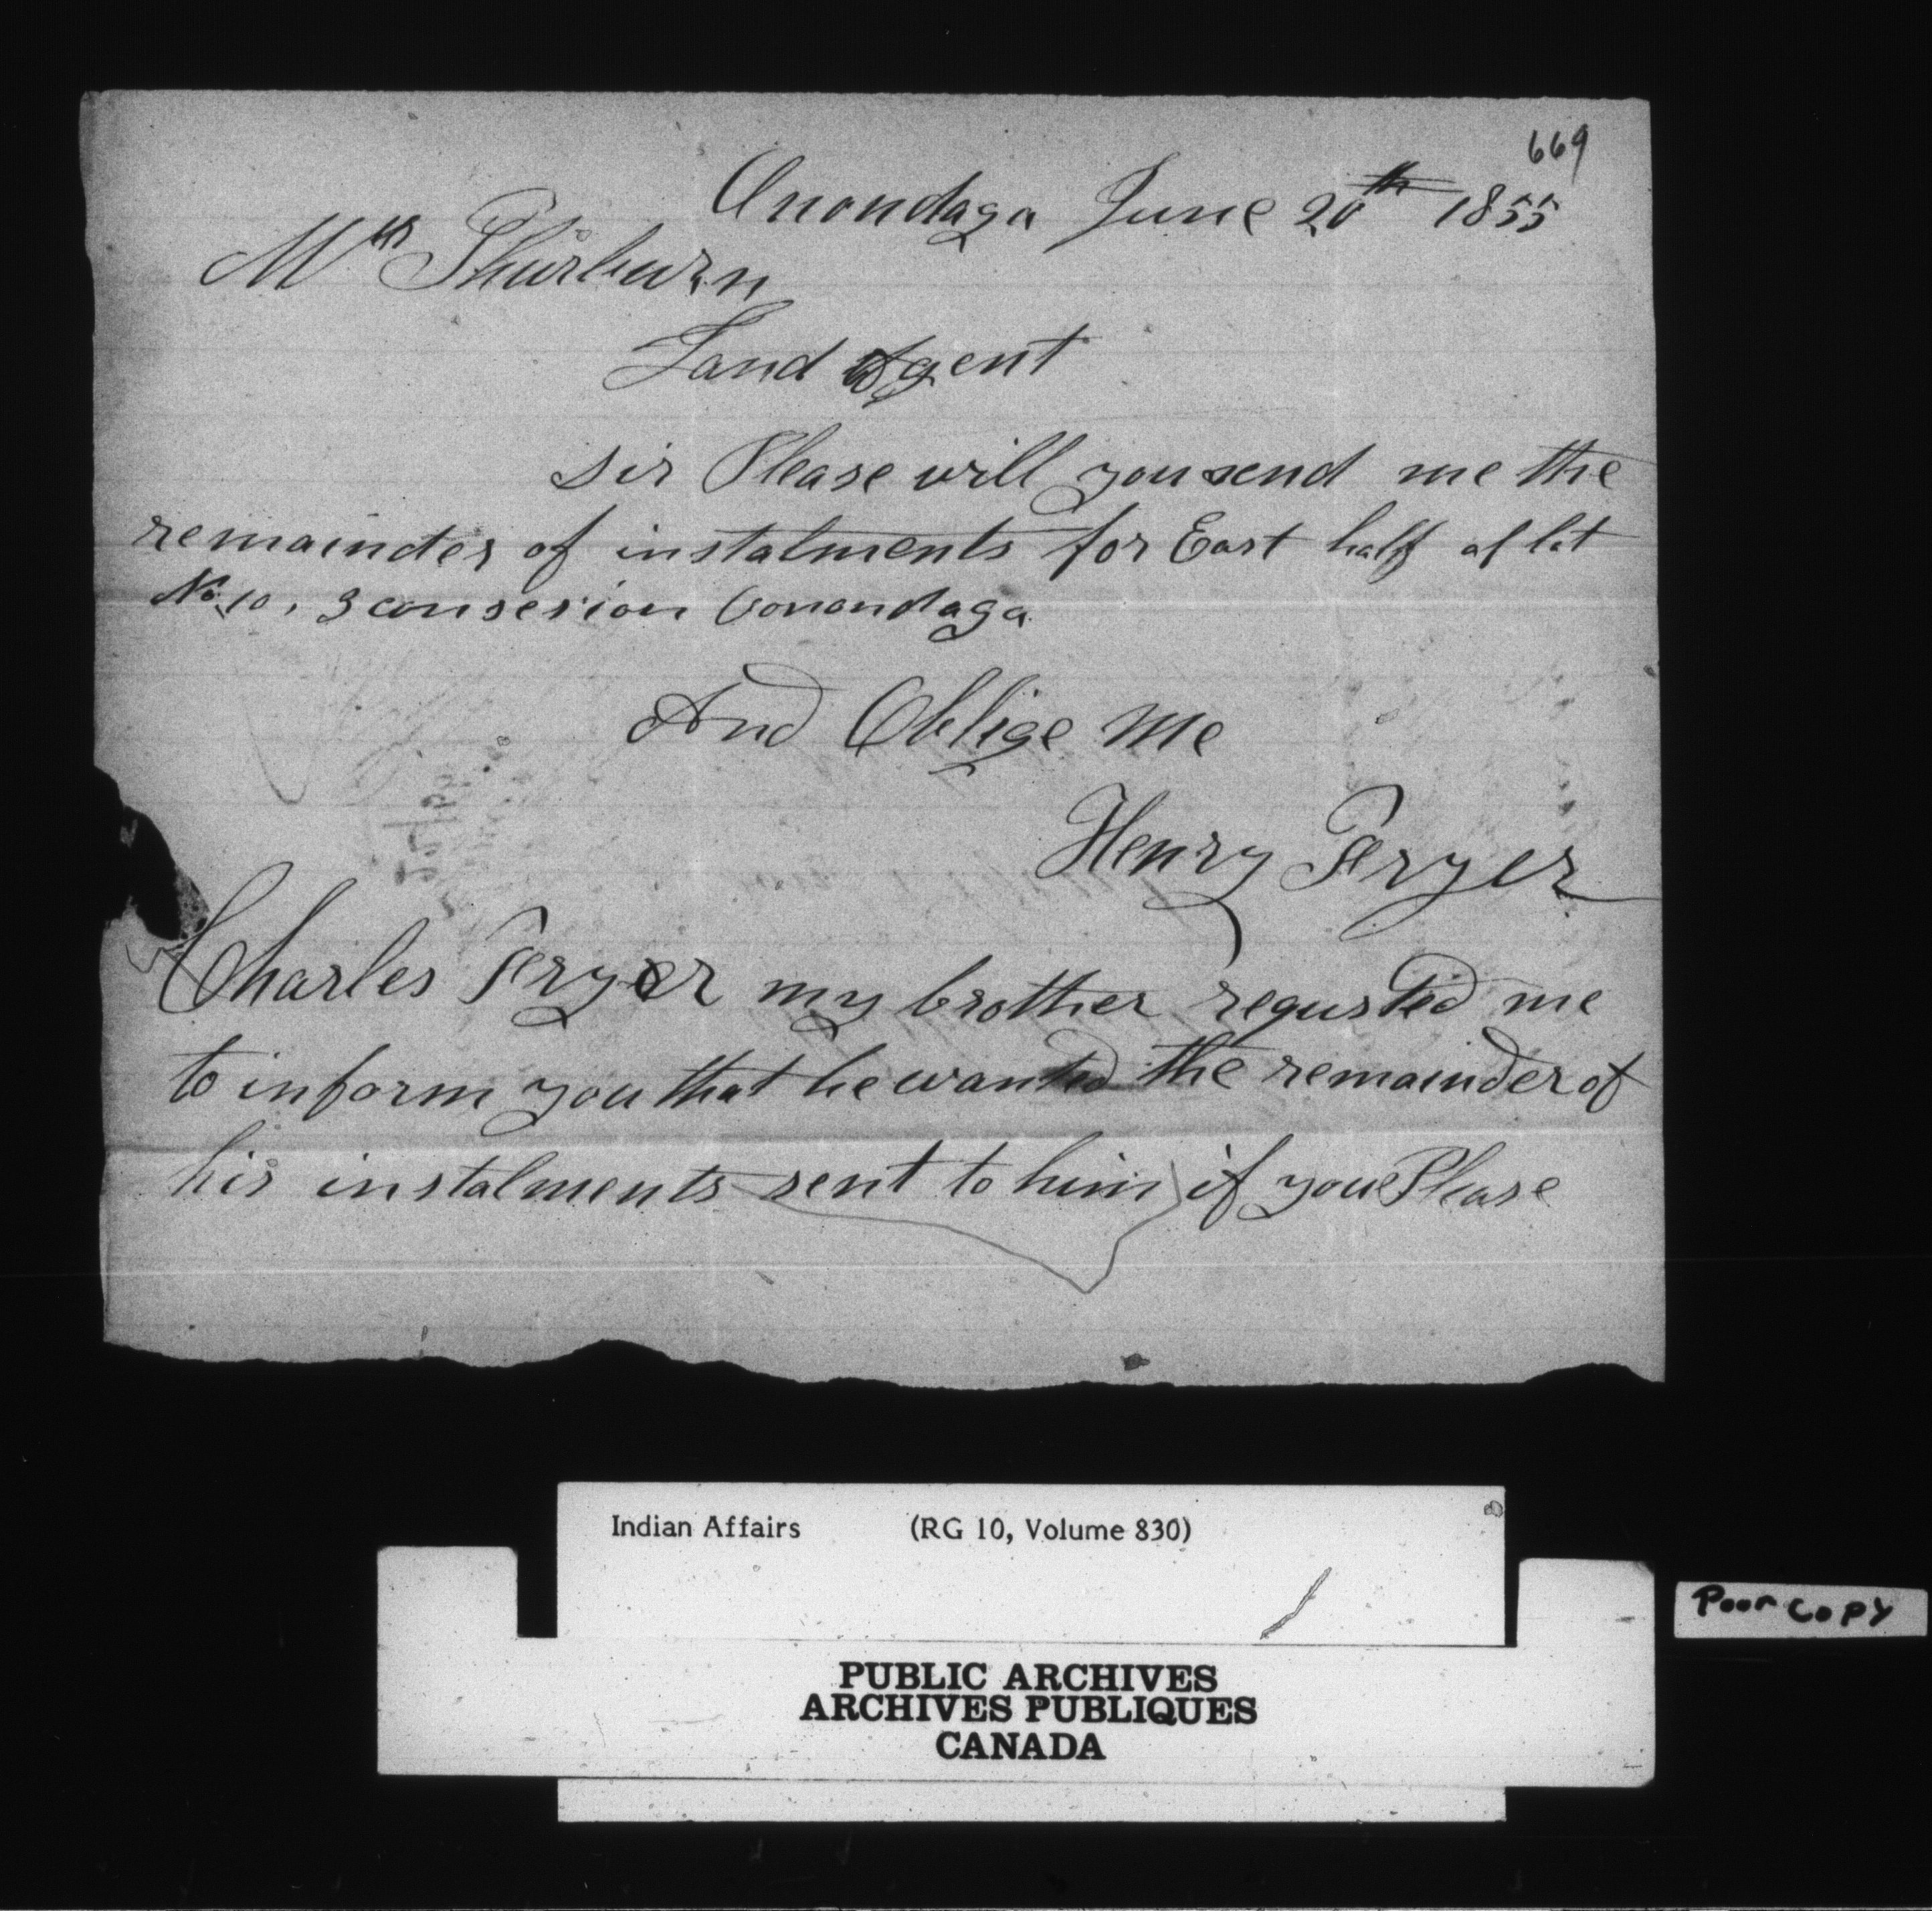 669
Onondaga June 20th 1855
Mr Thurburn
Land Agent
Sir Please will you send me the
remainder of instalments for East half of lot
No 10, 3 consesion Oonondaga
And Oblige Me
Henry Fryer
Charles Fryer my brother requsted me
to inform you that he wanted the remainder of
his instalments sent to him if you Please
Indian Affairs (RG 10, Volume 830)
Poor Copy
PUBLIC ARCHIVES
ARCHIVES PUBLIQUES
CANADA